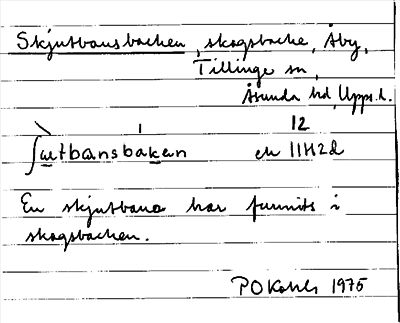 Skjutbansbacken, skogsbacke, Åby,
Tillinge sn,
Åsunda hd, Upps. l.
12
ʃu̲tbansbak̲en ek 11H2d
En skjutbana har funnits i
skogsbacken.
1975